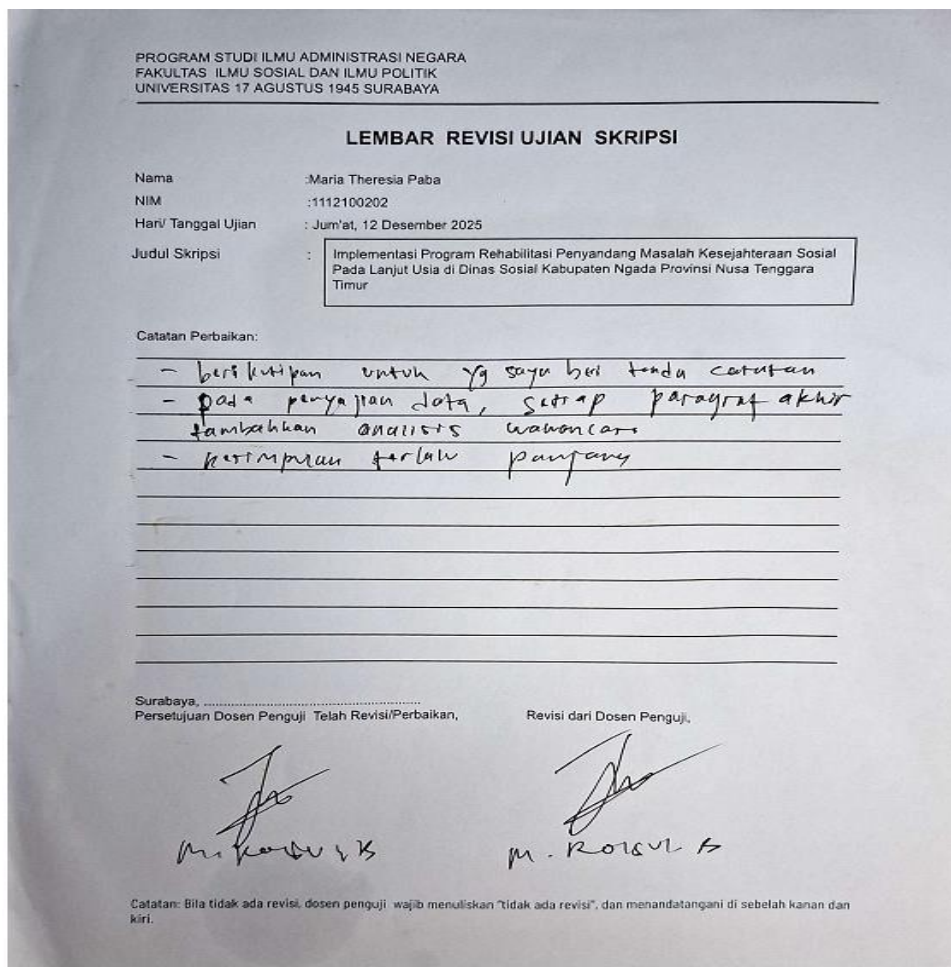 PROGRAM STUDI ILMU ADMINISTRASI NEGARA
FAKULTAS ILMU SOSIAL DAN ILMU POLITIK
UNIVERSITAS 17 AGUSTUS 1945 SURABAYA
LEMBAR REVISI UJIAN SKRIPSI
Nama :Maria Theresia Paba
NIM :1112100202
Hari/ Tanggal Ujian : Jum'at, 12 Desember 2025
Judul Skripsi : Implementasi Program Rehabilitasi Penyandang Masalah Kesejahteraan Sosial
Pada Lanjut Usia di Dinas Sosial Kabupaten Ngada Provinsi Nusa Tenggara
Timur
Catatan Perbaikan:
- beri kutipan untuk yg saya beri tanda catatan
- pada penyajian data, setiap paragraf akhir
tambahkan analisis wawancara
- kesimpulan terlalu panjang
Surabaya, ......................................................
Persetujuan Dosen Penguji Telah Revisi/Perbaikan, Revisi dari Dosen Penguji,
M. Roisul B M. Roisul B
Catatan: Bila tidak ada revisi, dosen penguji wajib menuliskan "tidak ada revisi", dan menandatangani di sebelah kanan dan
kiri.